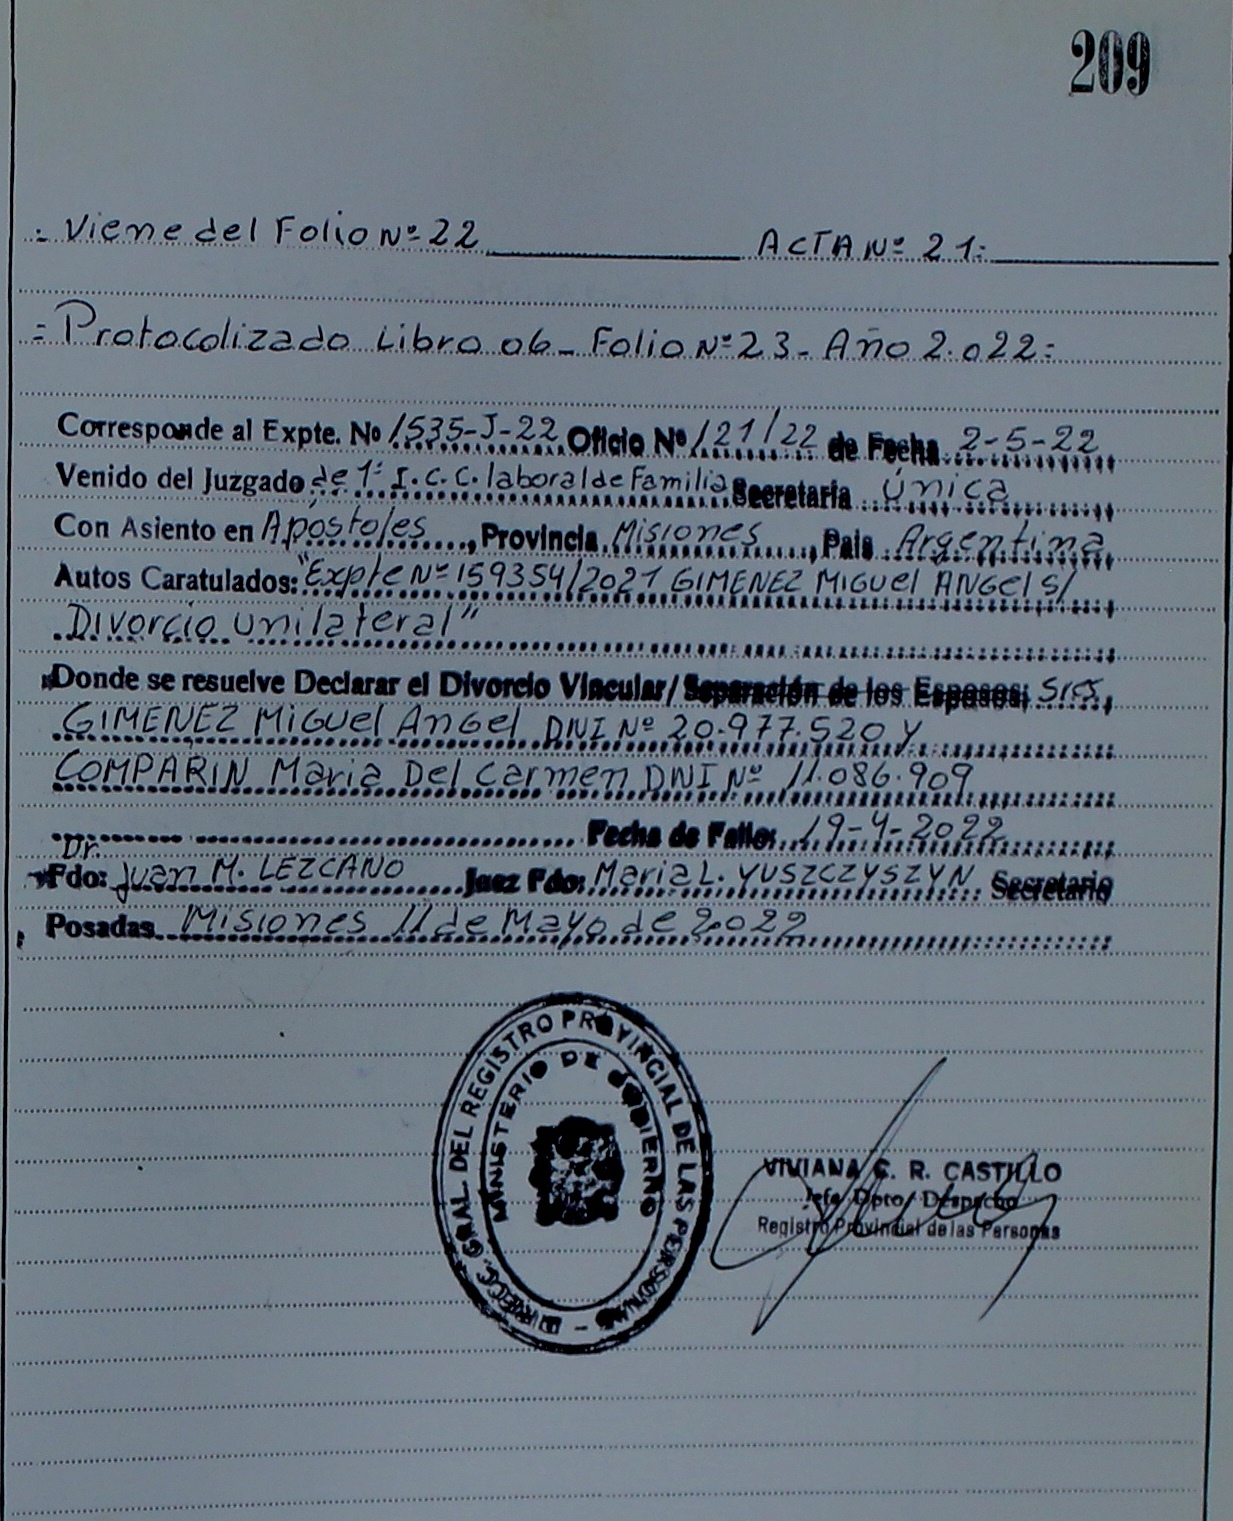 209
= Viene del Folio Nº 22 ACTA Nº 21=
= Protocolizado Libro 06 - Folio Nº 23 - Año 2.022=
Corresponde al Expte. Nº 1535-J-22 Oficio Nº 121/22 de Fecha 2-5-22
Venido del Juzgado de 1ª I.C.C. laboral de Familia Secretaria Única
Con Asiento en Apóstoles, Provincia Misiones, Pais Argentina
Autos Caratulados: "Expte Nº 159354/2021 GIMENEZ Miguel ANGel s/
Divorcio unilateral"
Donde se resuelve Declarar el Divorcio Vincular/ Separación de los Esposos: Sres.
GIMENEZ Miguel Angel DNI Nº 20.977.520 y
COMPARIN Maria Del Carmen DNI Nº 11.086.909
Fecha de Fallo: 19-4-2022
Fdo: Dr. Juan M. LEZCANO Juez Fdo: Maria L. YUSZCZYSZYN Secretario
Posadas Misiones 11 de Mayo de 2022
DIRECC. GRAL. DEL REGISTRO PROVINCIAL DE LAS PERSONAS -
MINISTERIO DE GOBIERNO
VIVIANA C. R. CASTILLO
Jefa Dpto. Despacho
Registro Provincial de las Personas